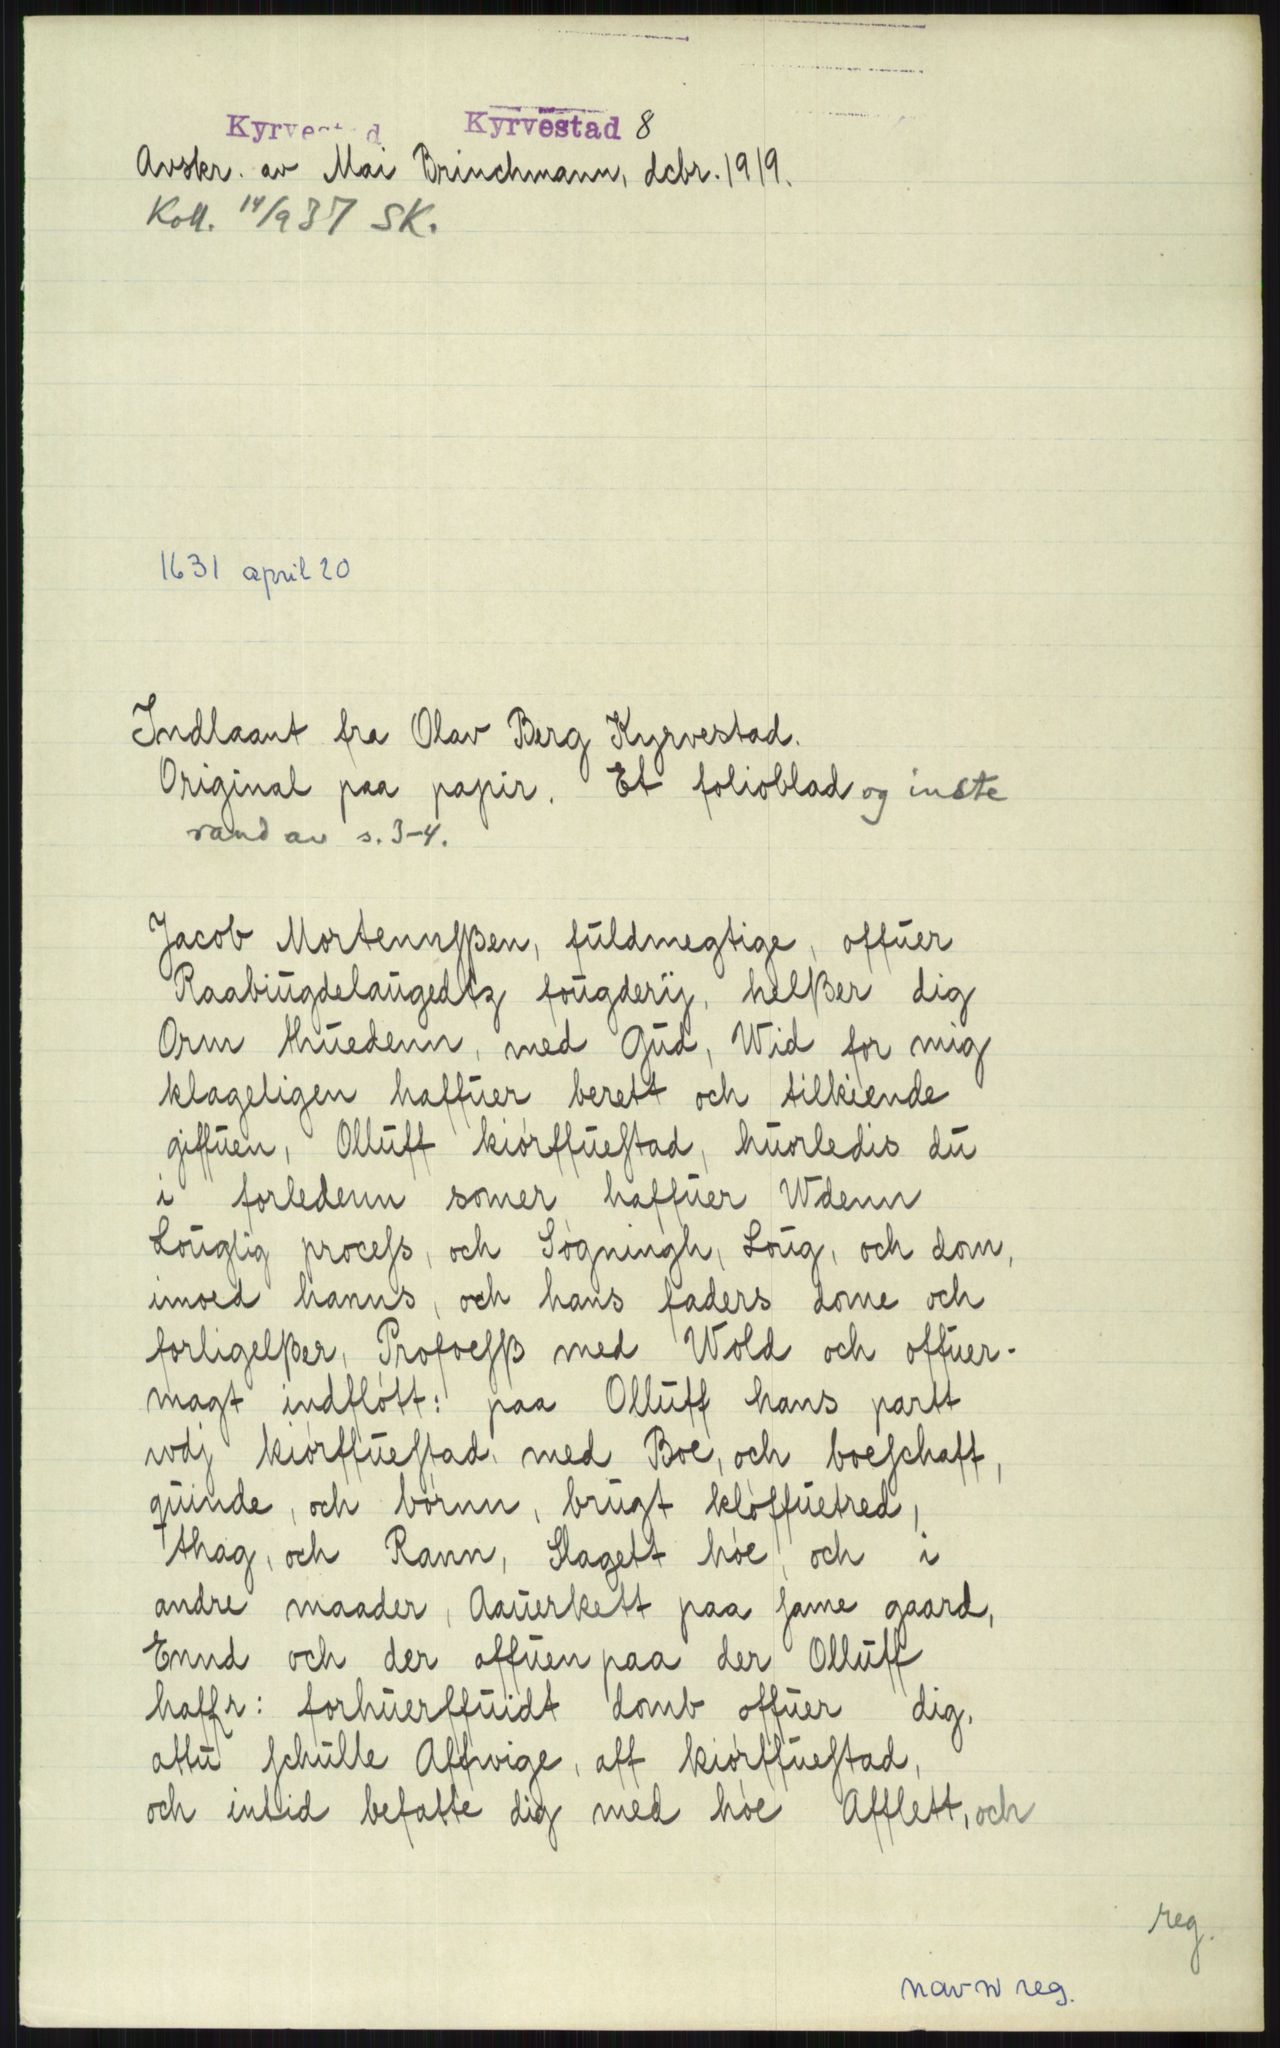 Kyrvestad Kyrvestad 8
Avskr. av Mai Brinchmann, dcbr. 1919.
Koll. 14/9 37 SK.
1631 april 20
Indlaant fra Olav Berg Kyrvestad.
Original paa papir. Et folioblad og inste
rand av s. 3-4.
Jacob Mortennsßen, fuldmegtige, offuer
Raabiugdelaugedtz fougderij, helßer dig
Orm thuedenn, med Gud, Wid for mig
klageligen haffuer berett och tilkiende
giffuen, Olluff kiørffuestad, huorledis du
i forledenn somer haffuer Wdenn
Louglig process, och Søgningh, Loug, och dom,
imoed hanns, och hans faders dome och
forligelßer, Profoesß med Wold och offuer-
magt indfløtt: paa Olluff hans partt
wdj kiørffuestad med Boe, och boeschaff,
quinde, och børnn, brugt kløffuetred,
Thag, och Rann, Slagett høe, och i
andre maader, Aauerkett paa same gaard,
Ennd och der offuen paa der Olluff
haffr: forhuerffuidt domb offuer dig,
attu schulle Affwige, aff kiørffuestad,
och intid befatte dig med høe Afflett, och
reg.
navn reg.